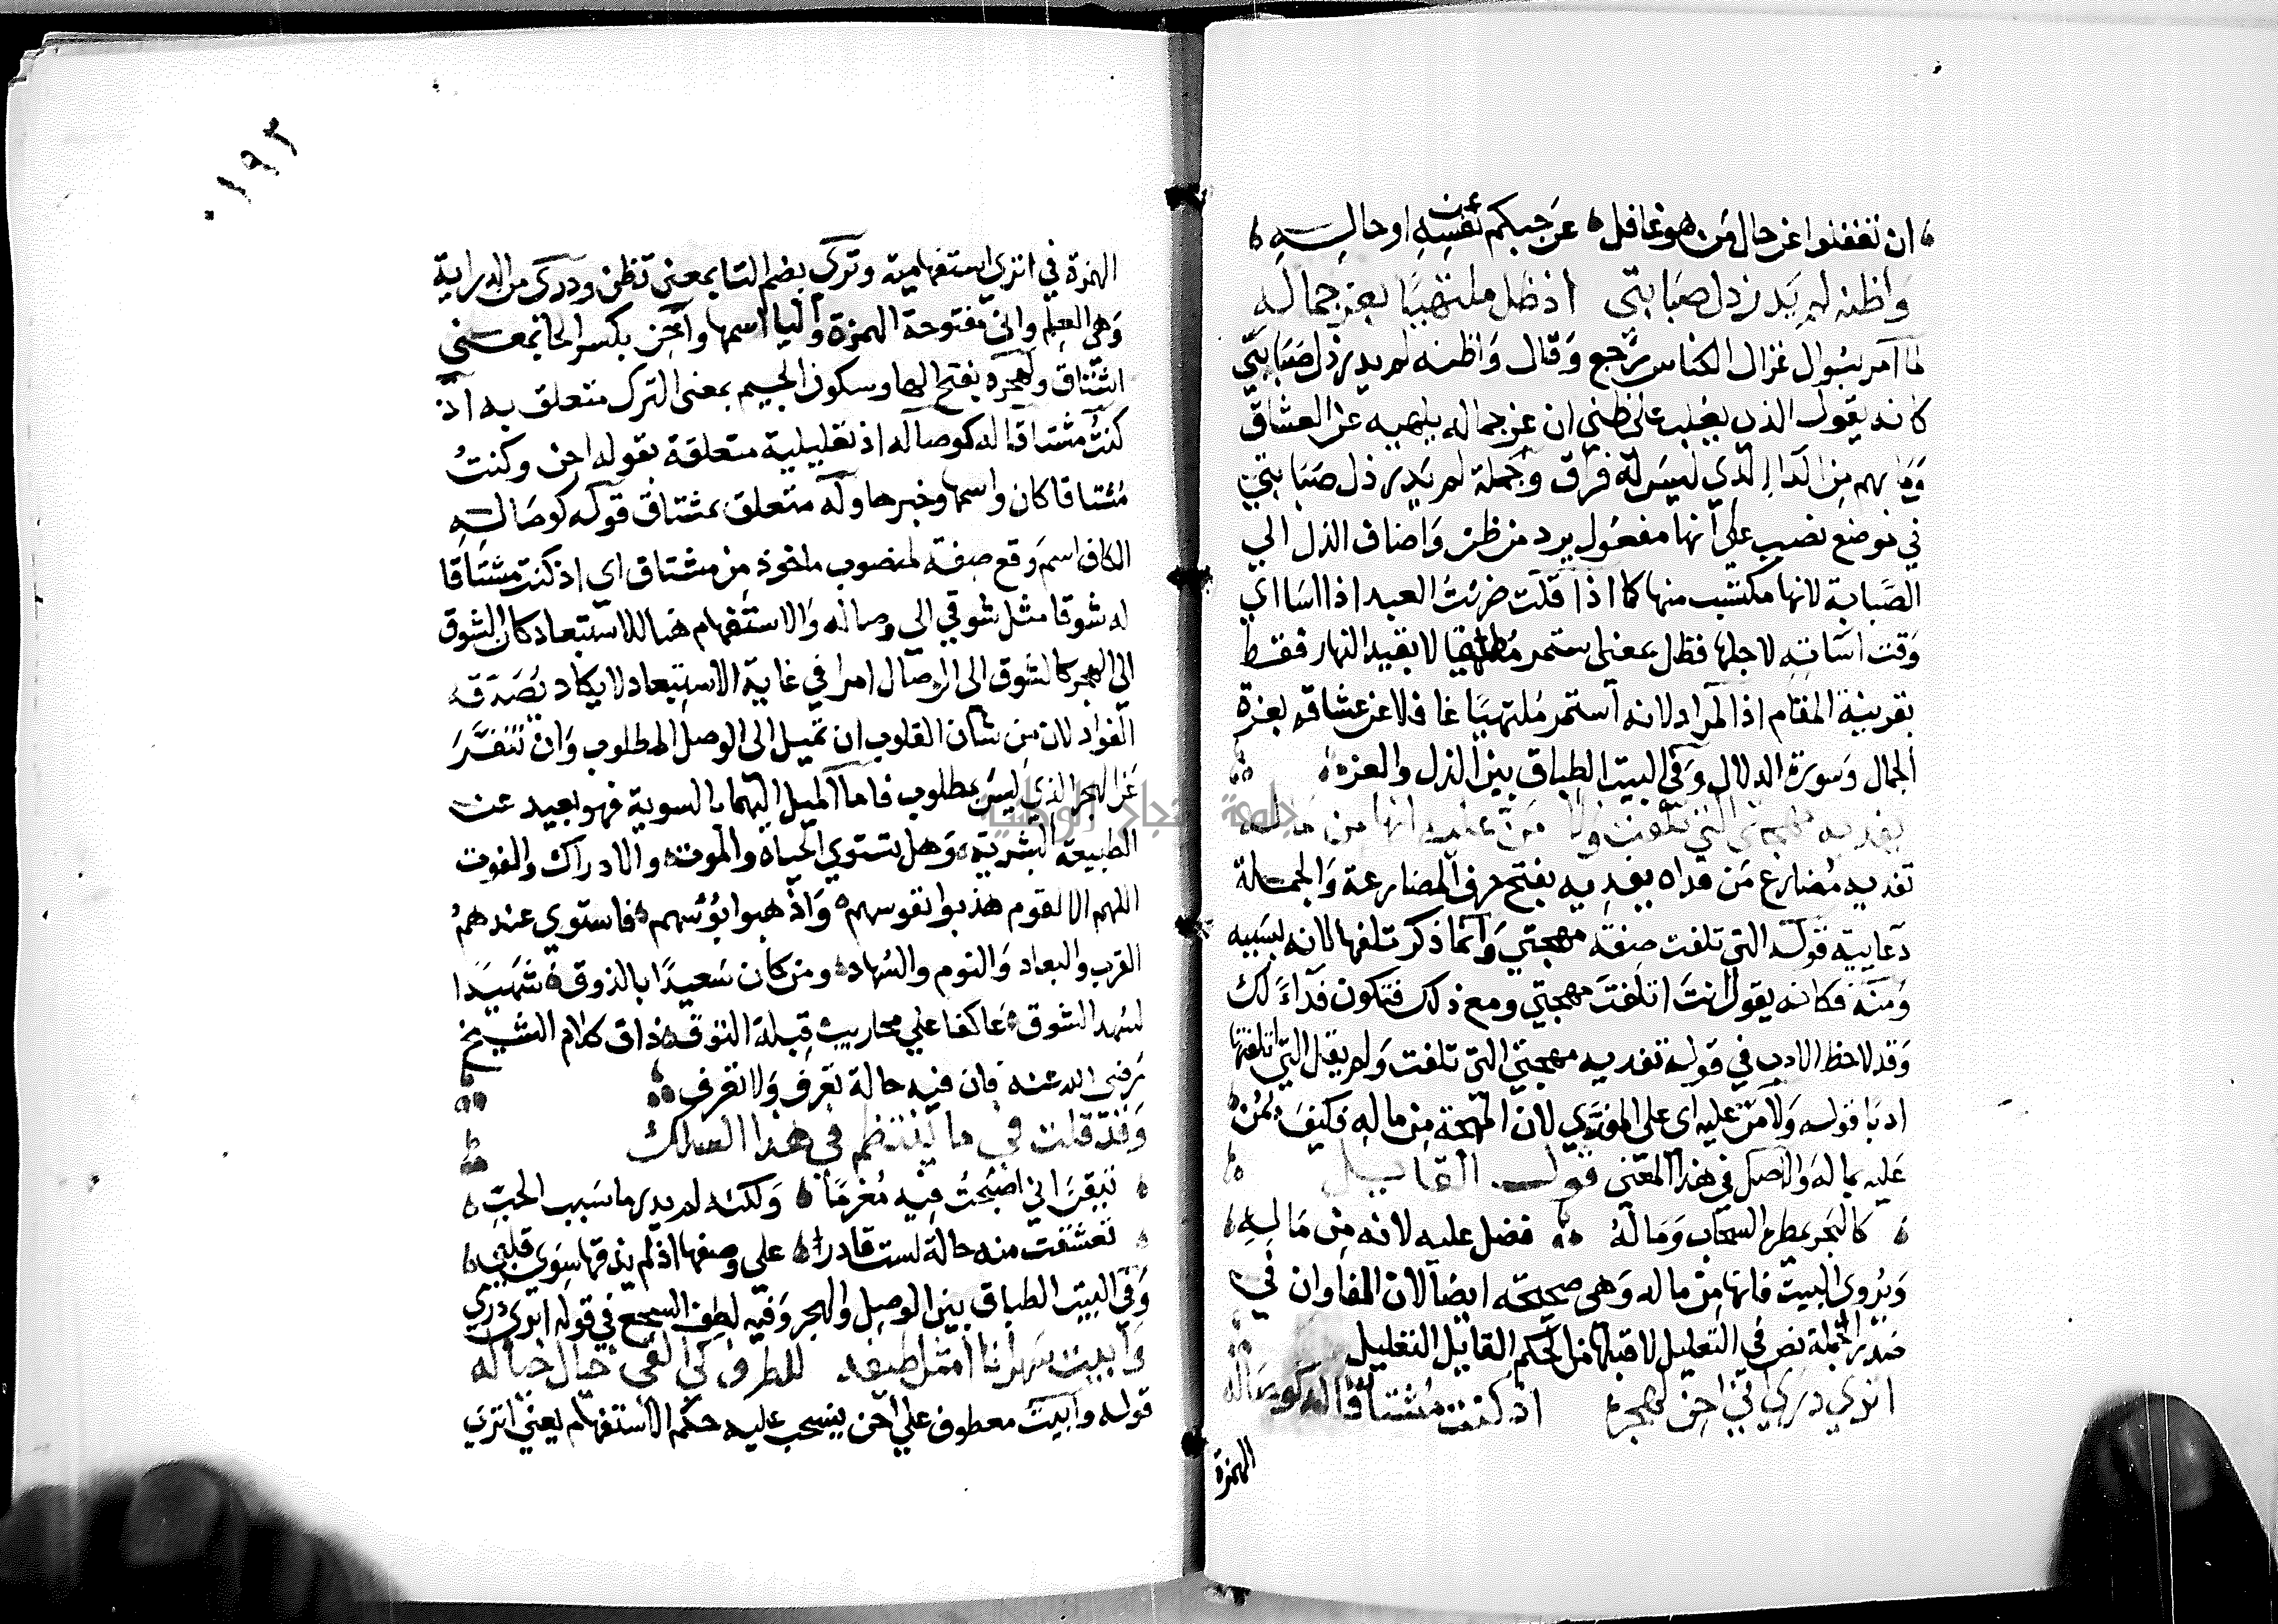 ان تغفلوا عن حال من هو غافل عن حبكم عن نفسه او حاله
واظنه لم يدر ذل صبابتي اذ ظل ملتهيا بعز جماله
لما امر بسوال غزال الكناس رجع وقال واظنه لم يدر ذل صبابتي
كانه يقول الذي يغلب على ظني ان عز جماله يلهيه عن العشاق
وما بهم من الداء الذي ليس له فراق وجملة لم يدر ذل صبابتي
في موضع نصب على انها مفعول من ظن واضاف الذل الي
الصبابة لانها مكتسب منها كما اذا قلت ضربت العبد اذا اسا اي
وقت اساته لاجلها فظل بمعنى استمر مطلقا لا بقيد النهار فقط
بقرينة المقام اذ المراد لانه استمر ملتهيا غافلا عن عشاقه بعزة
الجمال وسورة الدلال وفي البيت الطباق بين الذل والعزه
تفديه مهجتي التي تلفت ولا من عليه لانها من ماله
تفديه مضارع من فداه يفديه بفتح حرف المضارعة والجملة
دعاييه قوله التي تلفت صفة مهجتي وانما ذكر تلفها لانه بسببه
ومنه فكانه يقول انت اتلفت مهجتي ومع ذلك فتكون فداءً لك
وقد لاحظ الادب في قوله تفديه مهجتي التي تلفت ولم يقل التي اتلفتها
ادبا قوله ولا من عليه اي على المفدي لان المهجة من ماله وكيف يمن
عليه بماله والاصل في هذا المعنى قول القايل
كالبحر يمطره السحاب وما له فضل عليه لانه من ماله
ويروى البيت فانها من ماله وهي صحيحة ايضا لان الفا وان في
صدر الجملة نص في التعليل لما قبلها من الحكم القابل التعليل
اترى درى اني احن لهجره اذ كنت مشتاقا له كوصاله
الهمزة
٠١٩٢
الهمزة في اترى استفهامية وترى بضم التا بمعنى تظن ودرى من الدراية
وهي العلم واني مفتوحة الهمزة واليا اسمها واحن بكسر الحا بمعنى
اشتاق ولهجره بفتح الها وسكون الجيم بمعنى الترك متعلق به اذ
كنت مشتاقا له كوصاله اذ تعليلية متعلقة بقوله احن وكنت
مشتاقا كان واسمها وخبرها وله متعلق بمشتاق قوله كوصاله
الكاف اسم وقع صفة لمنصوب ماخوذ من مشتاق اي اذ كنت مشتاقا
له شوقا مثل شوقي الى وصاله والاستفهام هنا للاستبعاد كان الشوق
الى الهجر كالشوق الى الوصال امرا في غاية الاستبعاد لا يكاد يصدقه
الفواد لان من شان القلوب ان تميل الى الوصل المطلوب وان تتنفر
عن الهجر الذي ليس بمطلوب فاما الميل اليهما بالسوية فهو بعيد عن
الطبيعة البشرية وهل يستوي الحياه والموت والادراك والفوت
اللهم الا لقوم هذبوا نفوسهم واذهبوا بؤسهم فاستوى عندهم
القرب والبعاد والنوم والسهاد ومن كان سعيدًا بالذوق شهيدا
لشهد الشوق عاكفا علي محاريب قبلة التوق ذاق كلام الشيخ
رضى الله عنه فان فيه حالة تعرف ولا تعرف
وقد قلت في ما ينتظم في هذا السلك
تيقن اني اصبحت فيه مغرمًا ولكنه لم يدر ما سبب الحب
تعشقت منه حالة لست قادرا على وصفها اذ لم يذقها سوى قلبي
وفي البيت الطباق بين الوصل والهجر وفيه لطف السجع في قوله اترى درى
وابيت سهرانا امثل طيفه للطرف كي القى خيال خياله
قوله وابيت معطوف علي احن ينسحب عليه حكم الاستفهام يعني اترى